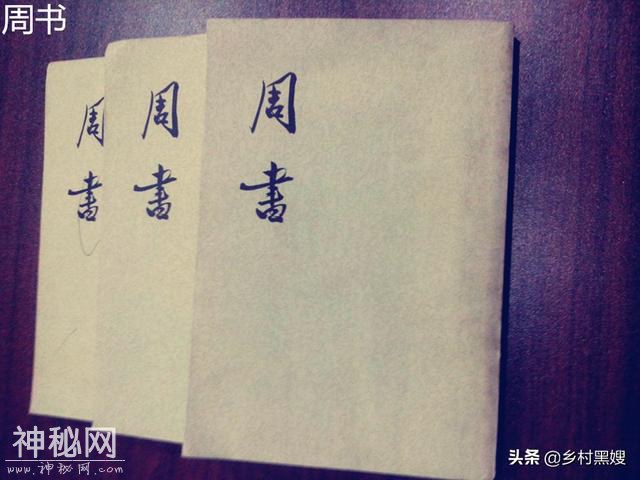 周书
周書
周書
周書
神秘网
www.神秘网.com
头条 @乡村黑嫂